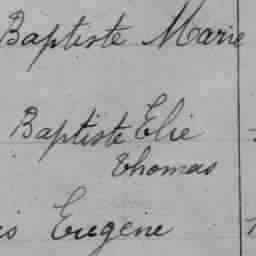 Baptiste Marie
Baptiste Elie
Thomas
is Eugène